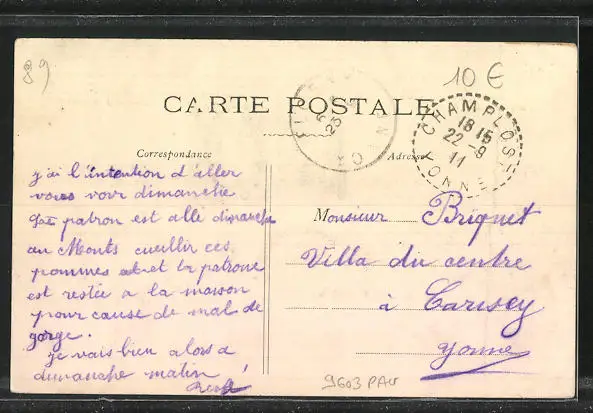 89
10 €
CARTE POSTALE
CHAMPLOST
18 15
22 - 9
11
YONNE
Correspondance
Adresse
j'ai l'intention d'aller
vous voir dimanche
patron est allé dimanche
au Monts cueillir ces
pommes et la patrone
est restée a la maison
pour cause de mal de
gorge.
je vais bien alors a
dimanche matin
Monsieur Briquet
Villa du centre
à Carisey
Yonne
9603 PAU